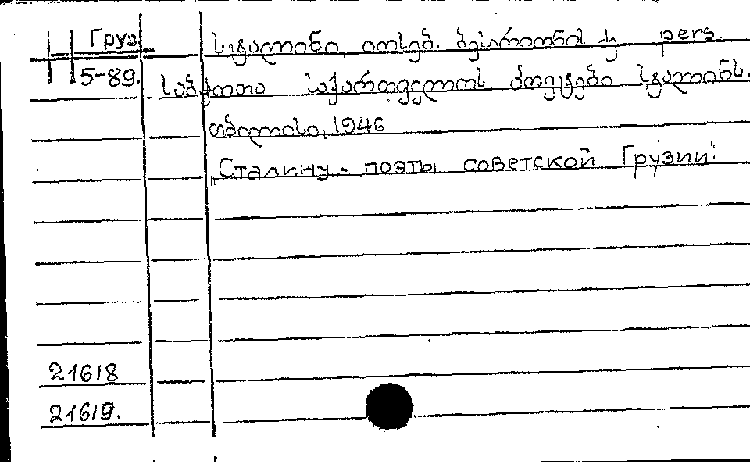 Груз
სტალინი, იოსებ ბესარიონის ძე pers.
5-89. საბჭოთა საქართველოს პოეტები სტალინს.
თბილისი, 1946
"Сталину - поэты советской Грузии"
21618
21619.